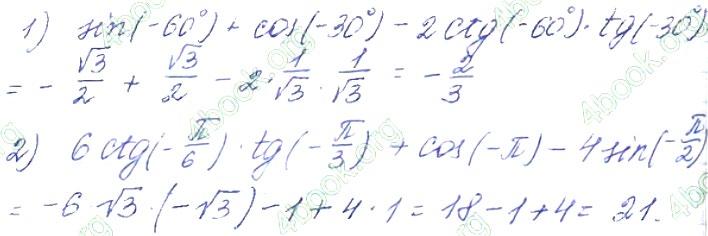 1) sin(-60°) + cos(-30°) - 2ctg(-60°)·tg(-30°)
= - √3/2 + √3/2 - 2·1/√3·1/√3 = - 2/3
2) 6ctg(-π/6)·tg(-π/3) + cos(-π) - 4sin(-π/2)
= -6·√3·(-√3) - 1 + 4·1 = 18 - 1 + 4 = 21.
4book.org